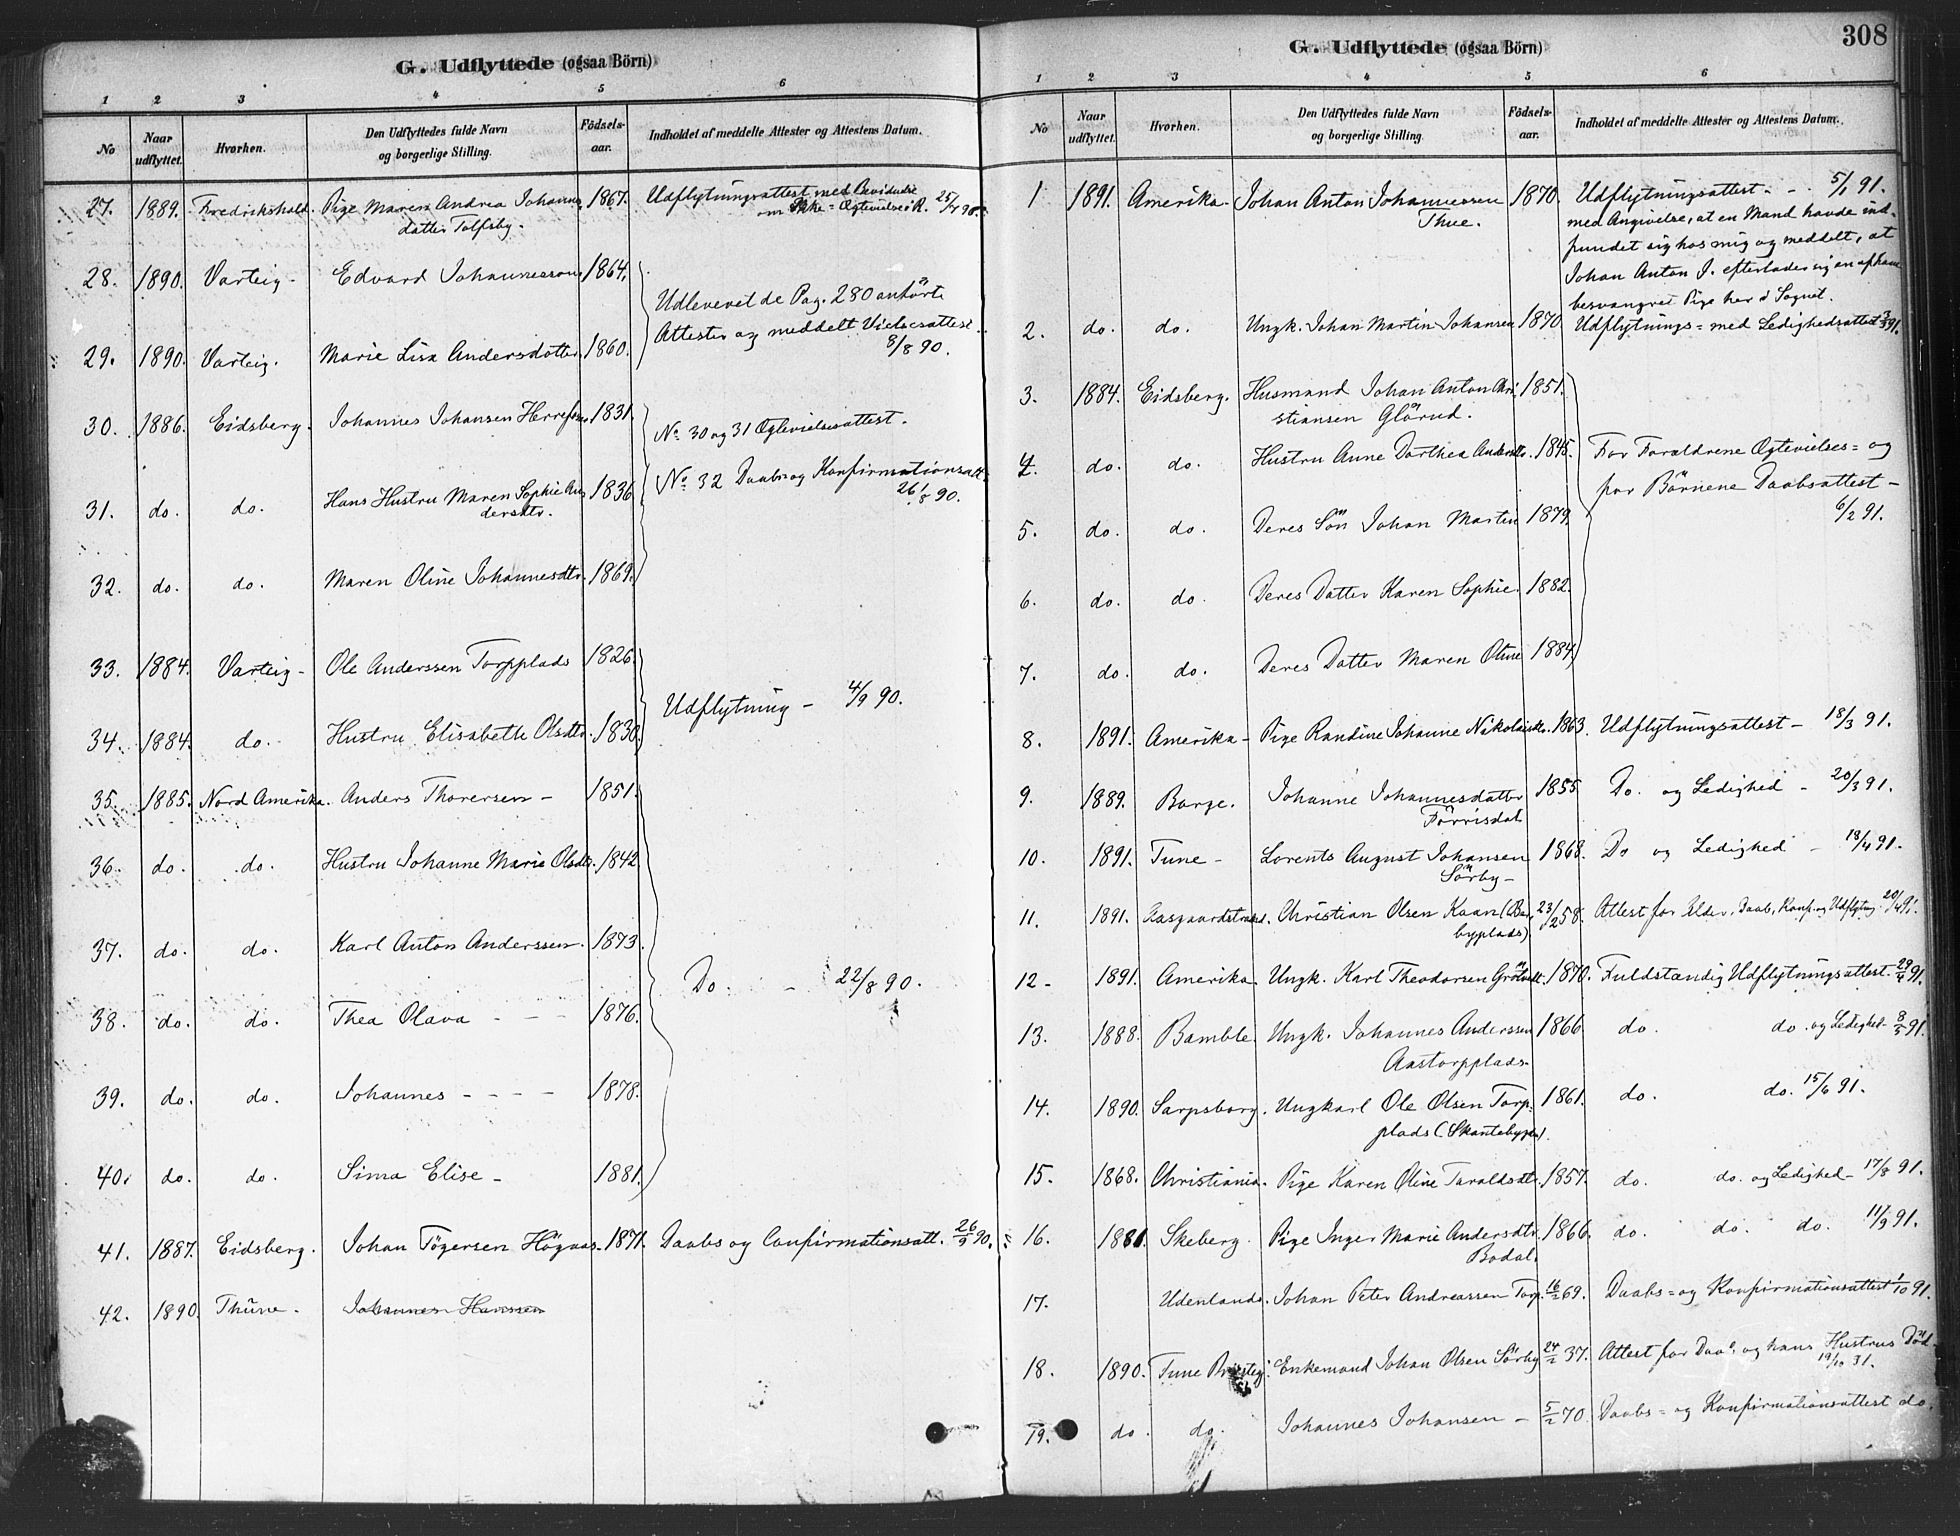 G. Udflyttede (ogsaa Börn)
1 2 3 4 5 6
No Naar udflyttet. Hvorhen. Den Udflyttedes fulde Navn og borgerlige Stilling. Födsels-aar. Indholdet af meddelte Attester og Attestens Datum.
27. 1889. Fredrikshald. Pige Maren Andrea Johannes 1867. Udflytningsattest med
datter Tolfsby. om Ikke-Ægtevielse i R. 25/7 90.
28. 1890. Varteig. Edvard Johannessen 1864.
Udleveret de Pag. 280 anförte
Attester og meddelt Vielsesattest
29. 1890. Varteig. Marie Lisa Andersdatter 1860. 8/8 90.
30. 1886. Eidsberg. Johannes Johansen 1831.
No. 30 og 31 Ægtevielsesattest.
No. 32 Daabs og Konfirmationsatt.
31. do. do. Hans Hustru Maren Sophie An 1836 26/8 90.
dersdtr.
32. do. do. Maren Oline Johannesdtr. 1869.
33. 1884. Varteig. Ole Anderssen Torpplads 1826.
Udflytning - 4/9 90.
34. 1884. do. Hustru Elisabeth Olsdtr. 1830.
35. 1885. Nord Amerika. Anders Thorersen - 1851.
36. do. do. Hustru Johanne Marie Olsdtr. 1842
37. do. do. Karl Anton Anderssen. 1873.
Do. - 22/8 90.
38. do. do. Thea Olava - - - 1876.
39. do. do. Johannes - - - - 1878.
40. do. do. Sima Elise - 1881.
41. 1887. Eidsberg. Johan Tögersen Högaas 1871. Daabs og Confirmationsatt. 26/9 90.
42. 1890. Thune. Johannes Hanssen
G. Udflyttede (ogsaa Börn) 308
1 2 3 4 5 6
No Naar udflyttet. Hvorhen. Den Udflyttedes fulde Navn og borgerlige Stilling. Födsels-aar. Indholdet af meddelte Attester og Attestens Datum.
1 1891. Amerika - Johan Anton Johannessen 1870. Udflytningsattest - - 5/1 91.
Thue. med Angivelse, at en Mand havde ind-
fundet sig hos mig og meddelt, at
Johan Anton J. efterlader sig en af ham
besvangret Pige her i Sognet.
2. do. do. Ungk. Johan Martin Johansen 1870 Udflytnings= med Ledighedsattest 91.
3. 1884. Eidsberg. Husmand Johan Anton Chri 1851.
stiansen Glörud.
4. do. do. Hustru Anne Dorthea Andersdtr. 1845. For Forældrene Ægtevielses= og
for Börnene Daabsattest -
5. do. do. Deres Sön Johan Martin 1879. 6/2 91.
6. do. do. Deres Datter Karen Sophie. 1882.
7. do. do. Deres Datter Maren Oline 1884.
8. 1891. Amerika - Pige Randine Johanne Nikolaisdtr. 1863. Udflytningsattest - 18/3 91.
9. 1889. Borge. Johanne Johannesdatter 1855 Do. og Ledighed - 20/3 91.
Förrisdal
10. 1891. Tune - Lorents August Johansen 1868. Do og Ledighed - 18/4 91.
Sörby -
11. 1891. Aasgaardstrand. Christian Olsen Kaan (Bar 23/2 58. Attest for Alder, Daab, Konf. og Udflytng 20/4 91.
byplads)
12 - 1891. Amerika. Ungk. Karl Theodorsen 1870. Fuldstændig Udflytningsattest. 29/4 91.
13. 1888. Bamble. Ungk. Johannes Anderssen 1866 do. do. og Ledighed - 8/5 91.
Aastorpplads.
14. 1890. Sarpsborg. Ungkarl Ole Olsen Torp- 1861. do. do. 15/6 91.
plads
15. 1868. Christiania. Pige Karen Oline Taraldsdtr. 1857. do. do. og Ledighed - 17/8 91.
16. 1881. Skeberg. Pige Inger Marie Andersdtr. 1866. do. do. do. 11/9 91.
Bodal.
17. Udenlands. Johan Peter Andreassen Torp. 16/2 69. Daabs= og Konfirmationsattest 1/10 91.
18. 1890. Tune Enkemand Johan Olsen Sörby 24/2 37. Attest for Daab og hans Hustrus Död -
19. do. do. Johannes Johansen - 5/2 70. Daabs= og Konfirmationsattest do.